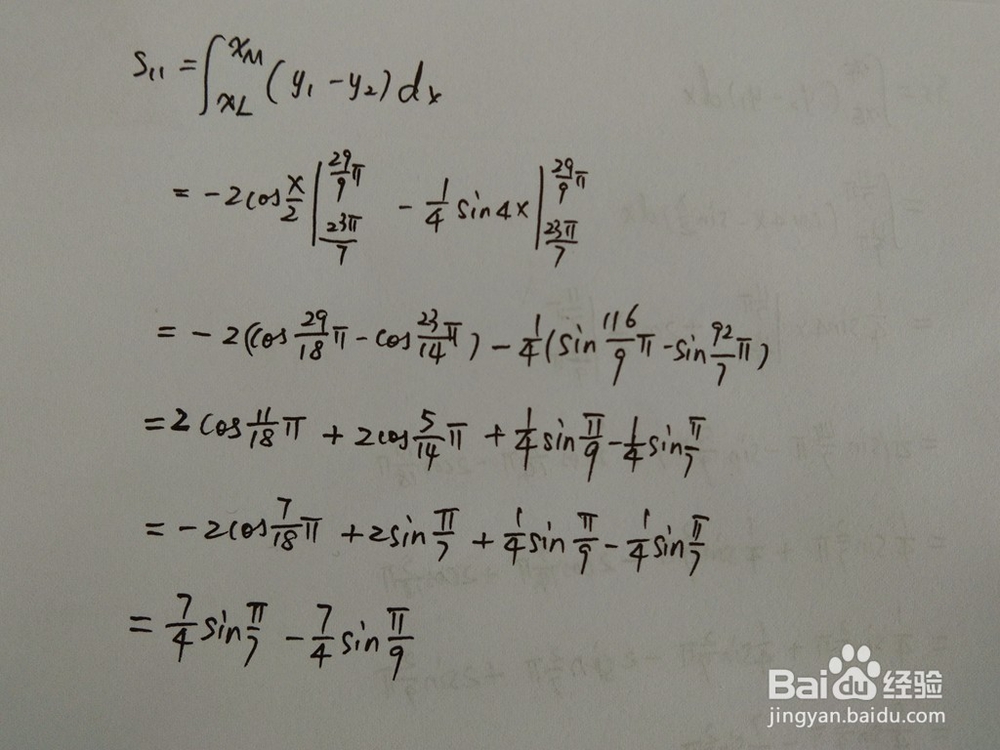 S₁₁ = ∫_{x_L}^{x_M} (y₁ - y₂) dx
= -2cos x/2 |_{23π/7}^{29/9 π} - 1/4 sin4x |_{23π/7}^{29/9 π}
= -2(cos 29/18 π - cos 23/14 π) - 1/4 (sin 116/9 π - sin 92/7 π)
= 2cos 11/18 π + 2cos 5/14 π + 1/4 sin π/9 - 1/4 sin π/7
= -2cos 7/18 π + 2sin π/7 + 1/4 sin π/9 - 1/4 sin π/7
= 7/4 sin π/7 - 7/4 sin π/9
Baidu 经验
jingyan.baidu.com